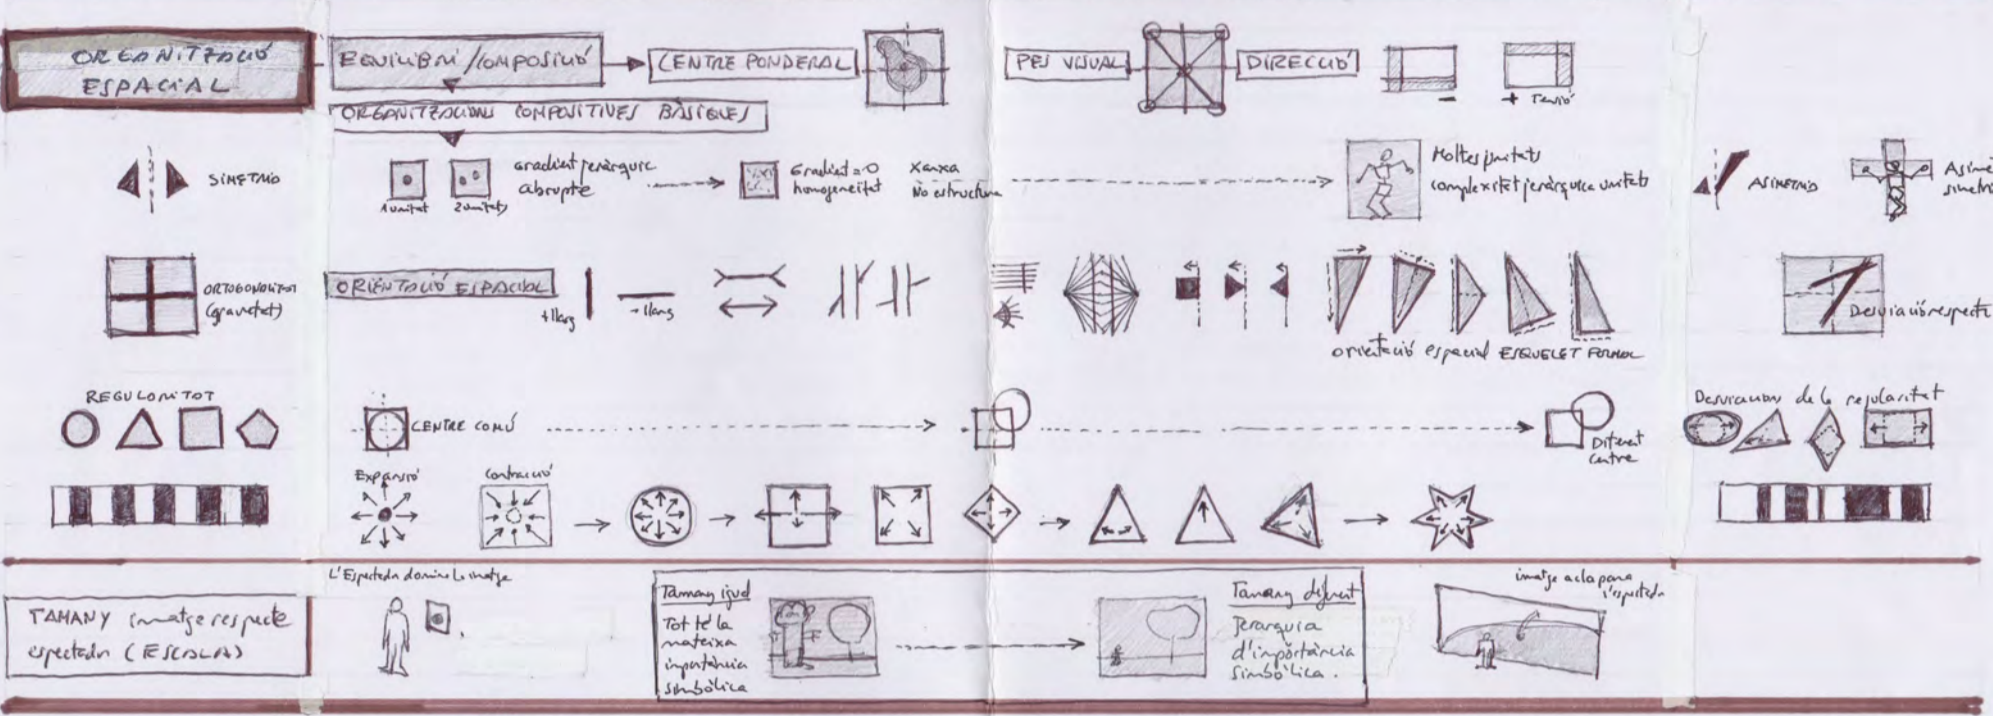 ORGANITZACIÓ
ESPACIAL
EQUILIBRI/COMPOSICIÓ
CENTRE PONDERAL
PES VISUAL
DIRECCIÓ
-
+ Tensió
ORGANITZACIONS COMPOSITIVES BÀSIQUES
SIMETRIA
1 unitat
2 unitats
Gradient jeràrquic
abrupte
Gradient = 0
homogeneitat
Xarxa
No estructura
Moltes unitats
complexitat jeràrquica unitats
ASIMETRIA
Asime
simetri
ORTOGONALITAT
(gravetat)
ORIENTACIÓ ESPACIAL
+ llarg
- llarg
orientació espacial ESQUELET FORMAL
Desviació respecte
REGULARITAT
CENTRE COMÚ
Diferent
centre
Desviacions de la regularitat
Expansió
Contracció
TAMANY imatge respecte
espectador (ESCALA)
L'Espectador domina la imatge
Tamany igual
Tot té la
mateixa
importància
simbòlica
Tamany diferent
Jerarquia
d'importància
simbòlica.
imatge aclapara
l'espectador